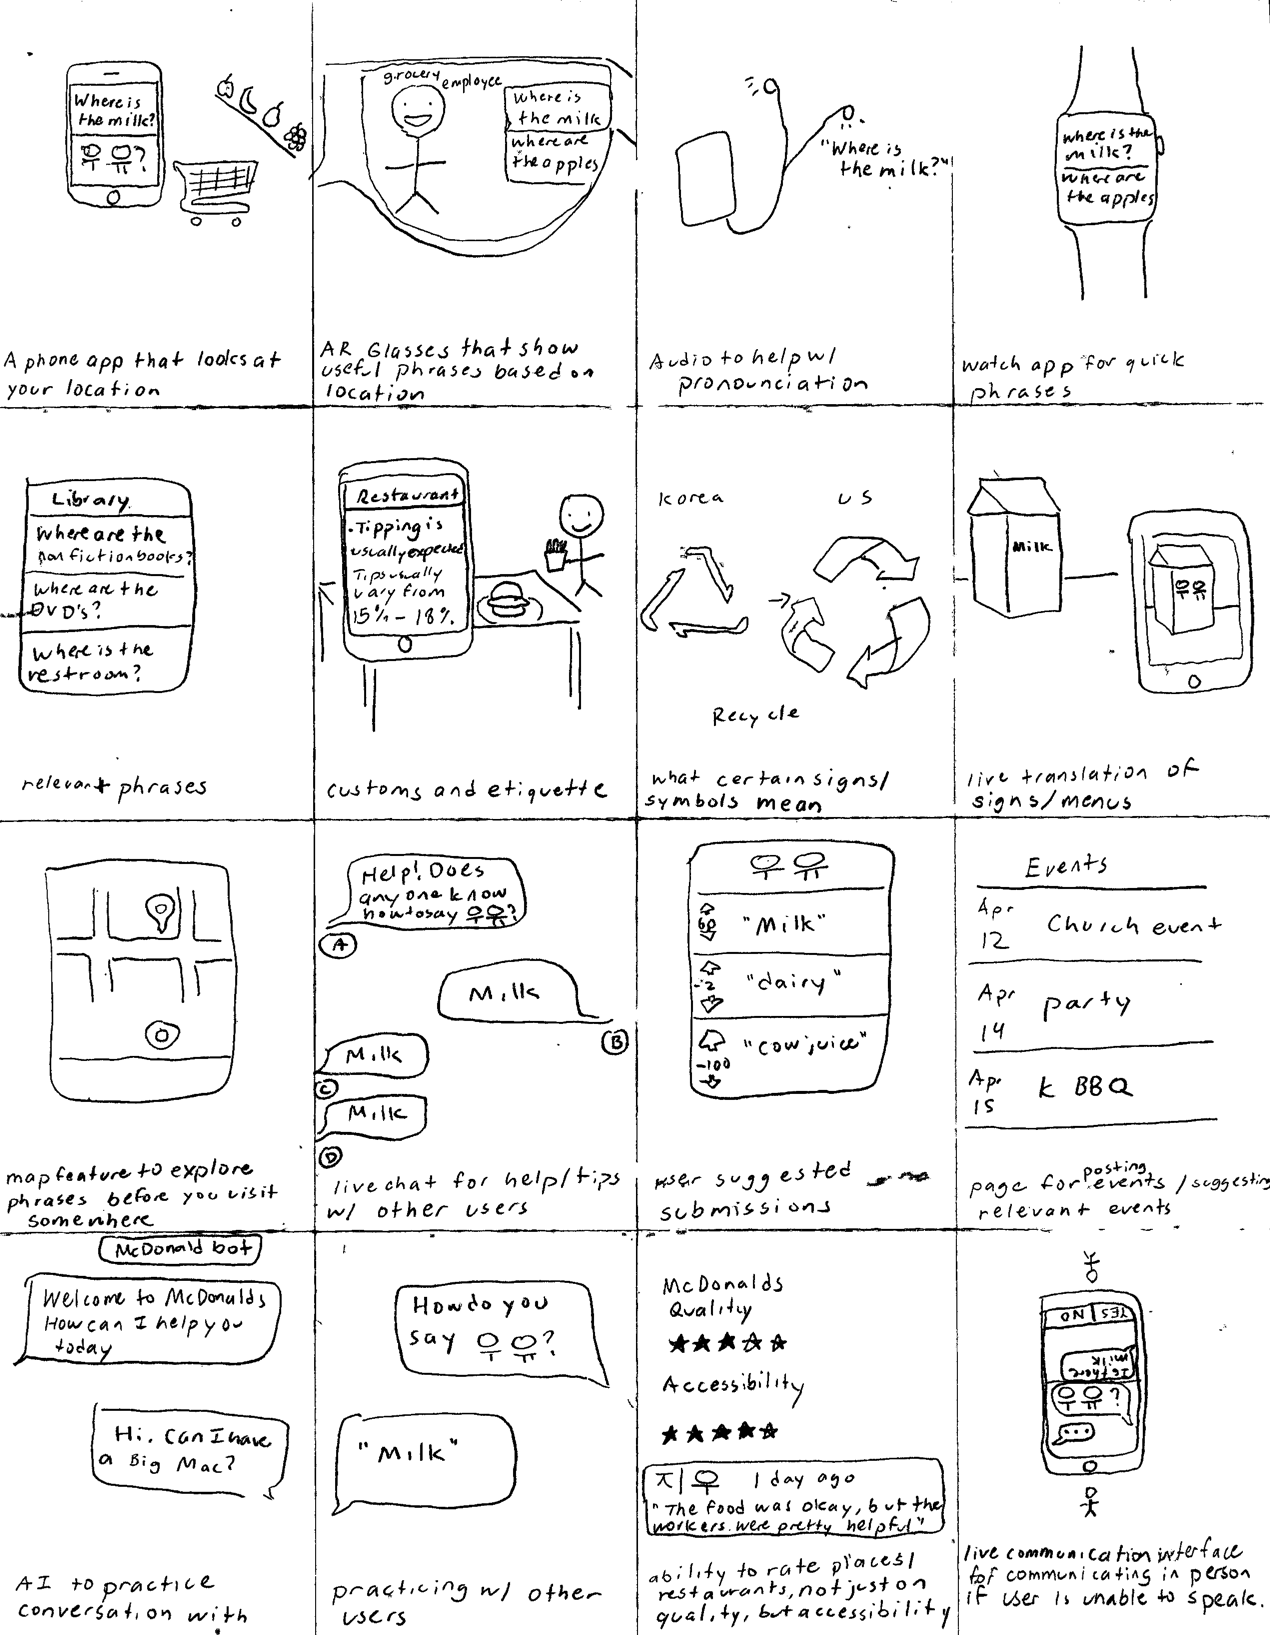 Where is
the milk?
우유?
A phone app that looks at
your location
grocery
employee
Where is
the milk
where are
the apples
AR Glasses that show
useful phrases based on
location
"Where is
the milk?"
Audio to help w/
pronounciation
where is the
milk?
where are
the apples
watch app for quick
phrases
Library
Where are the
non fiction books?
Where are the
DVD's?
Where is the
restroom?
relevant phrases
Restaurant
• Tipping is
usually expected
Tips usually
vary from
15% - 18%.
customs and etiquette
Korea
US
Recycle
what certain signs/
symbols mean
Milk
우유
live translation of
signs/menus
map feature to explore
phrases before you visit
somewhere
Help! Does
any one know
how to say 우유?
A
Milk
B
Milk
C
Milk
D
live chat for help/tips
w/ other users
우유
60
"Milk"
-2
"dairy"
-100
"cow juice"
user suggested
submissions
Events
Apr
12
Church event
Apr
14
party
Apr
15
K BBQ
page for posting events/suggesting
relevant events
McDonald bot
Welcome to McDonalds
How can I help you
today
Hi. Can I have
a Big Mac?
AI to practice
conversation with
How do you
say 우유?
"Milk"
practicing w/ other
users
McDonalds
Quality
Accessibility
지우 1 day ago
"The food was okay, but the
workers were pretty helpful"
ability to rate places/
restaurants, not just on
quality, but accessibility
YES NO
Is there
milk
우유?
...
live communication interface
for communicating in person
if user is unable to speak.